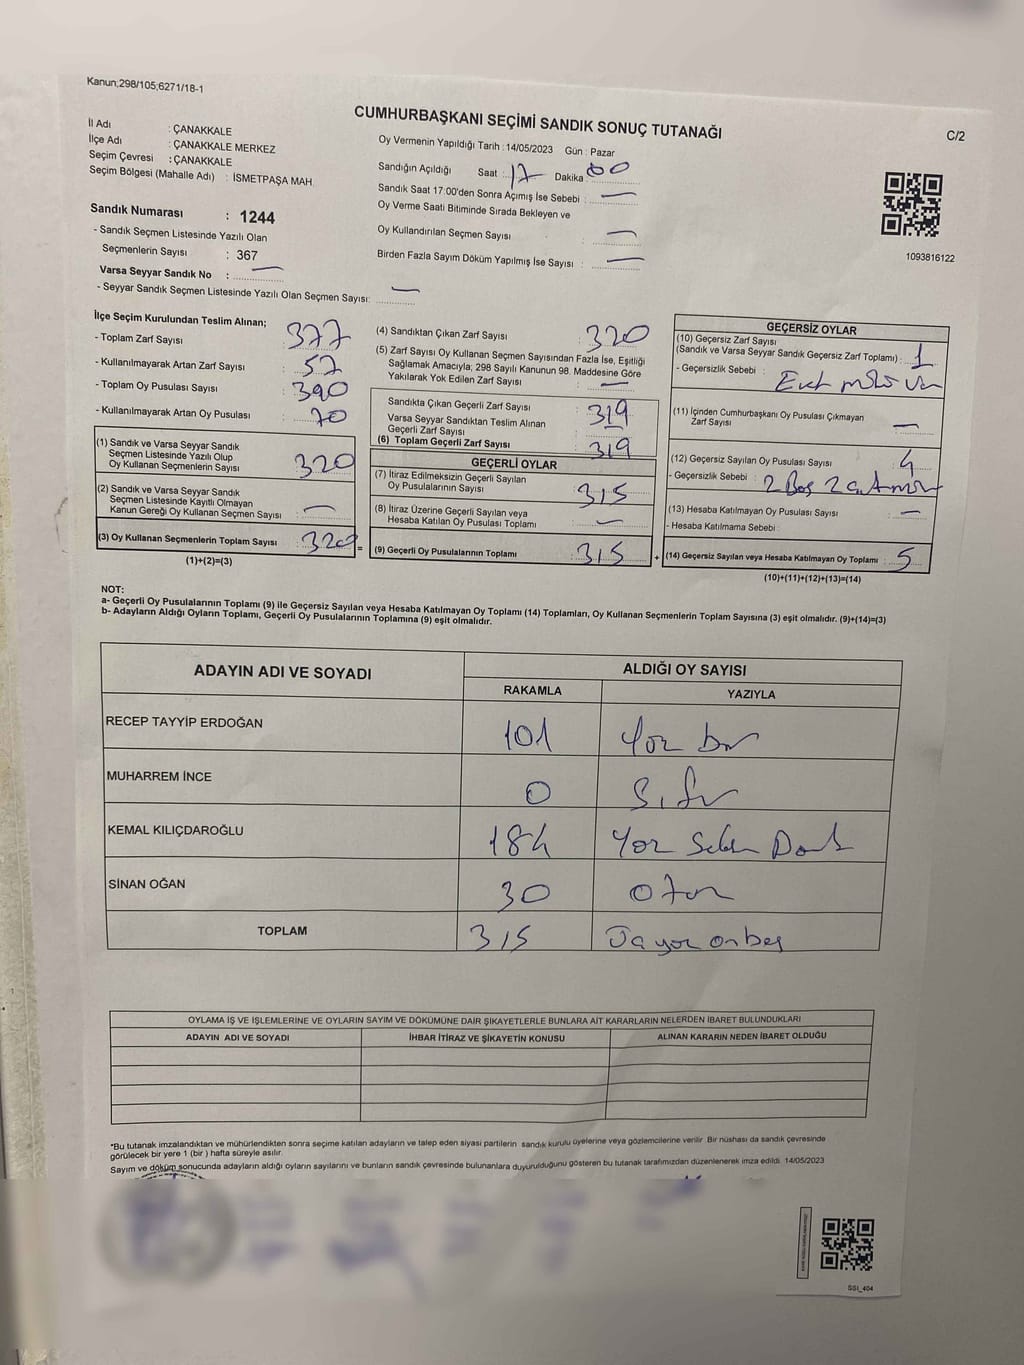 Kanun;298/105;6271/18-1
CUMHURBAŞKANI SEÇİMİ SANDIK SONUÇ TUTANAĞI
C/2
İl Adı : ÇANAKKALE
İlçe Adı : ÇANAKKALE MERKEZ
Seçim Çevresi : ÇANAKKALE
Seçim Bölgesi (Mahalle Adı) : İSMETPAŞA MAH.
Sandık Numarası : 1244
- Sandık Seçmen Listesinde Yazılı Olan
Seçmenlerin Sayısı : 367
Varsa Seyyar Sandık No : —
- Seyyar Sandık Seçmen Listesinde Yazılı Olan Seçmen Sayısı: —
Oy Vermenin Yapıldığı Tarih : 14/05/2023 Gün : Pazar
Sandığın Açıldığı Saat : 17 Dakika : 00
Sandık Saat 17:00'den Sonra Açımış İse Sebebi : —
Oy Verme Saati Bitiminde Sırada Bekleyen ve
Oy Kullandırılan Seçmen Sayısı : —
Birden Fazla Sayım Döküm Yapılmış İse Sayısı : —
1093816122
İlçe Seçim Kurulundan Teslim Alınan;
- Toplam Zarf Sayısı : 377
- Kullanılmayarak Artan Zarf Sayısı : 57
- Toplam Oy Pusulası Sayısı : 390
- Kullanılmayarak Artan Oy Pusulası : 70
(1) Sandık ve Varsa Seyyar Sandık
Seçmen Listesinde Yazılı Olup
Oy Kullanan Seçmenlerin Sayısı : 320
(2) Sandık ve Varsa Seyyar Sandık
Seçmen Listesinde Kayıtlı Olmayan
Kanun Gereği Oy Kullanan Seçmen Sayısı : —
(3) Oy Kullanan Seçmenlerin Toplam Sayısı : 320 =
(1)+(2)=(3)
(4) Sandıktan Çıkan Zarf Sayısı : 320
(5) Zarf Sayısı Oy Kullanan Seçmen Sayısından Fazla İse, Eşitliği
Sağlamak Amacıyla; 298 Sayılı Kanunun 98. Maddesine Göre
Yakılarak Yok Edilen Zarf Sayısı : —
Sandıkta Çıkan Geçerli Zarf Sayısı : 319
Varsa Seyyar Sandıktan Teslim Alınan
Geçerli Zarf Sayısı : —
(6) Toplam Geçerli Zarf Sayısı : 319
GEÇERLİ OYLAR
(7) İtiraz Edilmeksizin Geçerli Sayılan
Oy Pusulalarının Sayısı : 315
(8) İtiraz Üzerine Geçerli Sayılan veya
Hesaba Katılan Oy Pusulası Toplamı : —
(9) Geçerli Oy Pusulalarının Toplamı : 315 +
GEÇERSİZ OYLAR
(10) Geçersiz Zarf Sayısı
(Sandık ve Varsa Seyyar Sandık Geçersiz Zarf Toplamı) : 1
- Geçersizlik Sebebi :
(11) İçinden Cumhurbaşkanı Oy Pusulası Çıkmayan
Zarf Sayısı : —
(12) Geçersiz Sayılan Oy Pusulası Sayısı : 4
- Geçersizlik Sebebi : 2 Boş 2
(13) Hesaba Katılmayan Oy Pusulası Sayısı : —
- Hesaba Katılmama Sebebi :
(14) Geçersiz Sayılan veya Hesaba Katılmayan Oy Toplamı : 5
(10)+(11)+(12)+(13)=(14)
NOT:
a- Geçerli Oy Pusulalarının Toplamı (9) ile Geçersiz Sayılan veya Hesaba Katılmayan Oy Toplamı (14) Toplamları, Oy Kullanan Seçmenlerin Toplam Sayısına (3) eşit olmalıdır. (9)+(14)=(3)
b- Adayların Aldığı Oyların Toplamı, Geçerli Oy Pusulalarının Toplamına (9) eşit olmalıdır.
ADAYIN ADI VE SOYADI ALDIĞI OY SAYISI
RAKAMLA YAZIYLA
RECEP TAYYİP ERDOĞAN 101 Yüz bir
MUHARREM İNCE 0 Sıfır
KEMAL KILIÇDAROĞLU 184 Yüz Seksen Dört
SİNAN OĞAN 30 Otuz
TOPLAM 315 Üçyüz onbeş
OYLAMA İŞ VE İŞLEMLERİNE VE OYLARIN SAYIM VE DÖKÜMÜNE DAİR ŞİKAYETLERLE BUNLARA AİT KARARLARIN NELERDEN İBARET BULUNDUKLARI
ADAYIN ADI VE SOYADI İHBAR İTİRAZ VE ŞİKAYETİN KONUSU ALINAN KARARIN NEDEN İBARET OLDUĞU
*Bu tutanak imzalandıktan ve mühürlendikten sonra seçime katılan adayların ve talep eden siyasi partilerin sandık kurulu üyelerine veya gözlemcilerine verilir. Bir nüshası da sandık çevresinde
görülecek bir yere 1 (bir) hafta süreyle asılır.
Sayım ve döküm sonucunda adayların aldığı oyların sayılarını ve bunların sandık çevresinde bulunanlara duyurulduğunu gösteren bu tutanak tarafımızdan düzenlenerek imza edildi. 14/05/2023
SSI_404